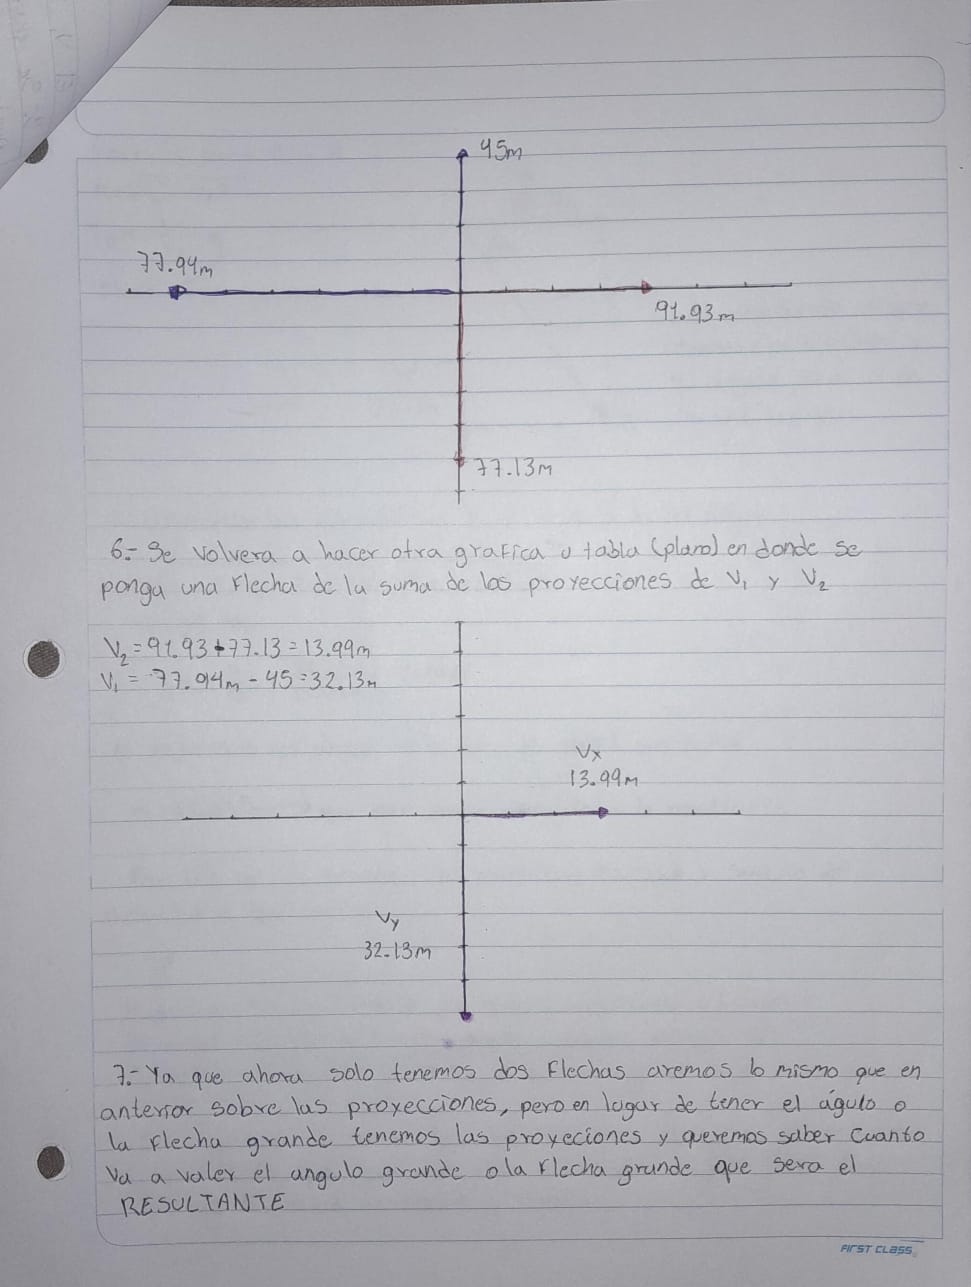 45m
77.94m
91.93m
77.13m
6.- Se volvera a hacer otra grafica o tabla (plano) en donde se
ponga una flecha de la suma de las proyecciones de V₁ y V₂
V₂ = 91.93 + 77.13 = 13.99m
V₁ = 77.94m - 45 = 32.13m
Vx
13.99m
Vy
32.13m
7.- Ya que ahora solo tenemos dos flechas aremos lo mismo que en
anterior sobre las proyecciones, pero en lugar de tener el águlo o
la flecha grande tenemos las proyeciones y queremos saber cuanto
va a valer el angulo grande o la flecha grande que sera el
RESULTANTE
FIRST CLASS